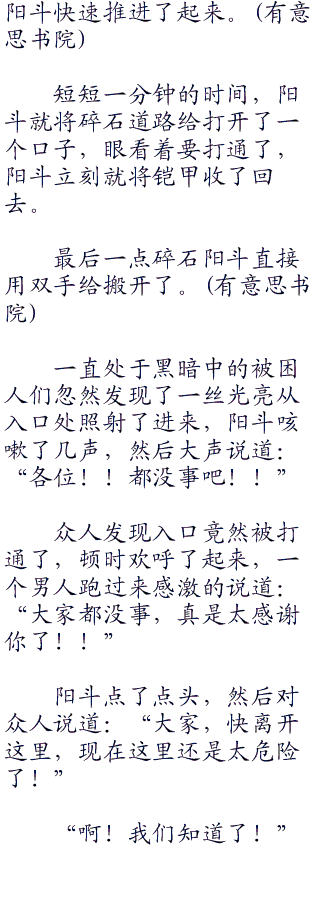 阳斗快速推进了起来。(有意
思书院)
短短一分钟的时间，阳
斗就将碎石道路给打开了一
个口子，眼看着要打通了，
阳斗立刻就将铠甲收了回
去。
最后一点碎石阳斗直接
用双手给搬开了。(有意思书
院)
一直处于黑暗中的被困
人们忽然发现了一丝光亮从
入口处照射了进来，阳斗咳
嗽了几声，然后大声说道：
“各位！！都没事吧！！”
众人发现入口竟然被打
通了，顿时欢呼了起来，一
个男人跑过来感激的说道：
“大家都没事，真是太感谢
你了！！”
阳斗点了点头，然后对
众人说道：“大家，快离开
这里，现在这里还是太危险
了！”
“啊！我们知道了！”